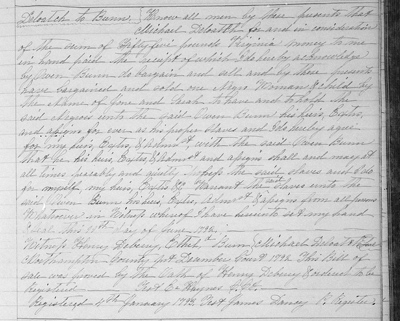 Deloatch to Bunn. Know all men by these presents that
Michael Deloatch for and in consideration
of the sum of Fifty five pounds Virginia money to me
in hand paid the receipt of which I do hereby acknowledge
by Owen Bunn do bargain and sell and by these presents
have bargained and sold one Negro Woman & child by
the name of June and to have and to hold the
said negroes unto the said Owen Bunn his heirs, Exrs,
and assigns for ever as his proper slaves and I do hereby agree
for my heirs, & Adms with the said Owen Bunn
that he his heirs, & Adms and assigns shall and may at
all times peaceably and quietly the said slaves and I do
for myself my heirs, Warrant the said slaves unto the
said Owen Bunn his heirs, & assigns from all persons
Whatsoever in Witness whereof I have hereunto set my hand
& seal this 11th day of June 1792.
Witness Henry Deberry, Bunn, Michael Deloatch
Northampton County December Court 1792 This Bill of
Sale was proved by the Oath of Henry Deberry & ordered to be
registered
Registered 4th January 1793,